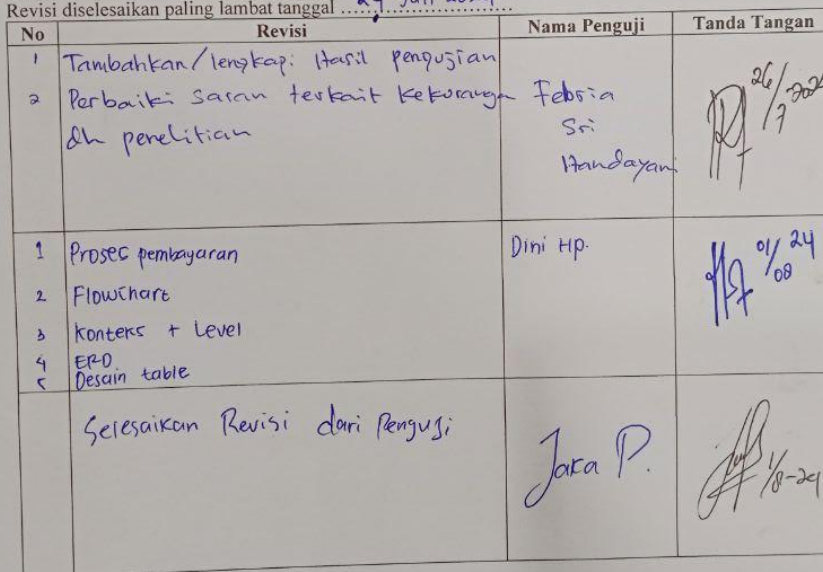 Revisi diselesaikan paling lambat tanggal
No Revisi Nama Penguji Tanda Tangan
1 Tambahkan/lengkapi Hasil pengujian
2 Perbaiki saran terkait kekurangan Febria
dlm penelitian Sri
Handayani
26/7 2024
1 Proses pembayaran Dini HP. 01/08 24
2 Flowchart
3 Konteks + Level
4 ERD
5 Desain table
Selesaikan Revisi dari Penguji Jaka P. 1/8-24